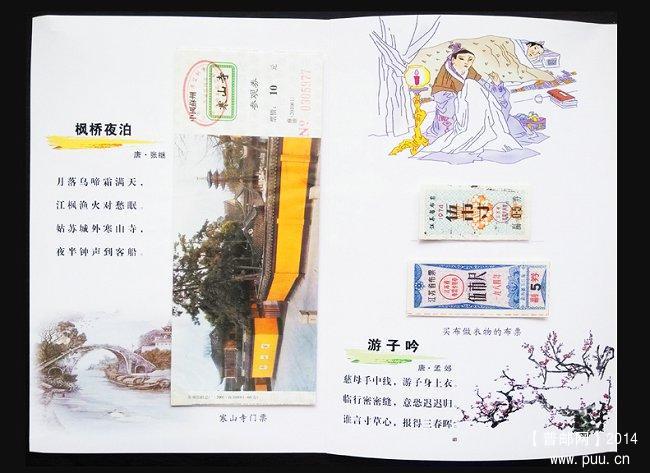 枫桥夜泊
唐·张继
月落乌啼霜满天，
江枫渔火对愁眠。
姑苏城外寒山寺，
夜半钟声到客船。
中国苏州
寒山寺
参观券
票价：10 元
No 0305977
寒山寺门票
江苏省布票
1974
伍市寸
江苏省布票
伍市尺
一九八四年
副5券
买布做衣物的布票
游子吟
唐·孟郊
慈母手中线，游子身上衣。
临行密密缝，意恐迟迟归。
谁言寸草心，报得三春晖。
【普邮网】2014
www.puu.cn